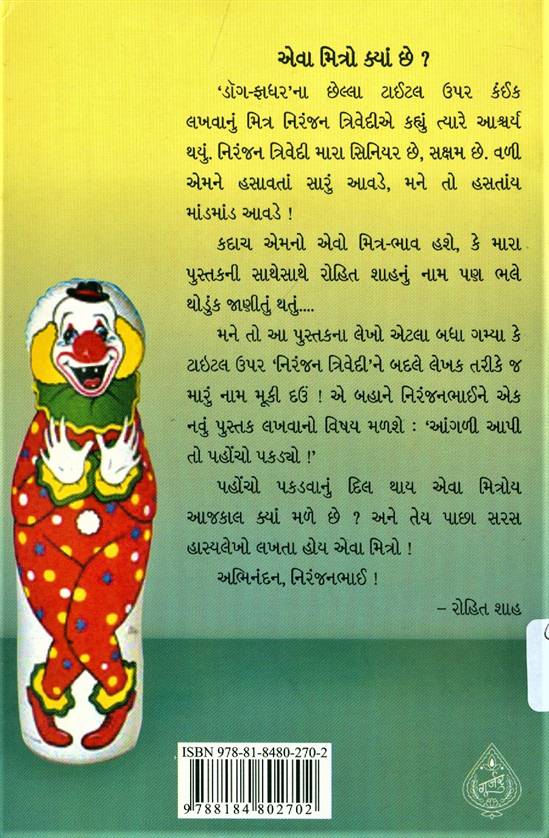 એવા મિત્રો ક્યાં છે ?
‘ડૉગ-ફાધર’ના છેલ્લા ટાઈટલ ઉપર કંઈક
લખવાનું મિત્ર નિરંજન ત્રિવેદીએ કહ્યું ત્યારે આશ્ચર્ય
થયું. નિરંજન ત્રિવેદી મારા સિનિયર છે, સક્ષમ છે. વળી
એમને હસાવતાં સારું આવડે, મને તો હસતાંય
માંડમાંડ આવડે !
કદાચ એમનો એવો મિત્ર-ભાવ હશે, કે મારા
પુસ્તકની સાથેસાથે રોહિત શાહનું નામ પણ ભલે
થોડુંક જાણીતું થતું....
મને તો આ પુસ્તકના લેખો એટલા બધા ગમ્યા કે
ટાઇટલ ઉપર ‘નિરંજન ત્રિવેદી’ને બદલે લેખક તરીકે જ
મારું નામ મૂકી દઉં ! એ બહાને નિરંજનભાઈને એક
નવું પુસ્તક લખવાનો વિષય મળશે : ‘આંગળી આપી
તો પહોંચો પકડ્યો !’
પહોંચો પકડવાનું દિલ થાય એવા મિત્રોય
આજકાલ ક્યાં મળે છે ? અને તેય પાછા સરસ
હાસ્યલેખો લખતા હોય એવા મિત્રો !
અભિનંદન, નિરંજનભાઈ !
– રોહિત શાહ
ISBN 978-81-8480-270-2
9 788184 802702
ગૂર્જર